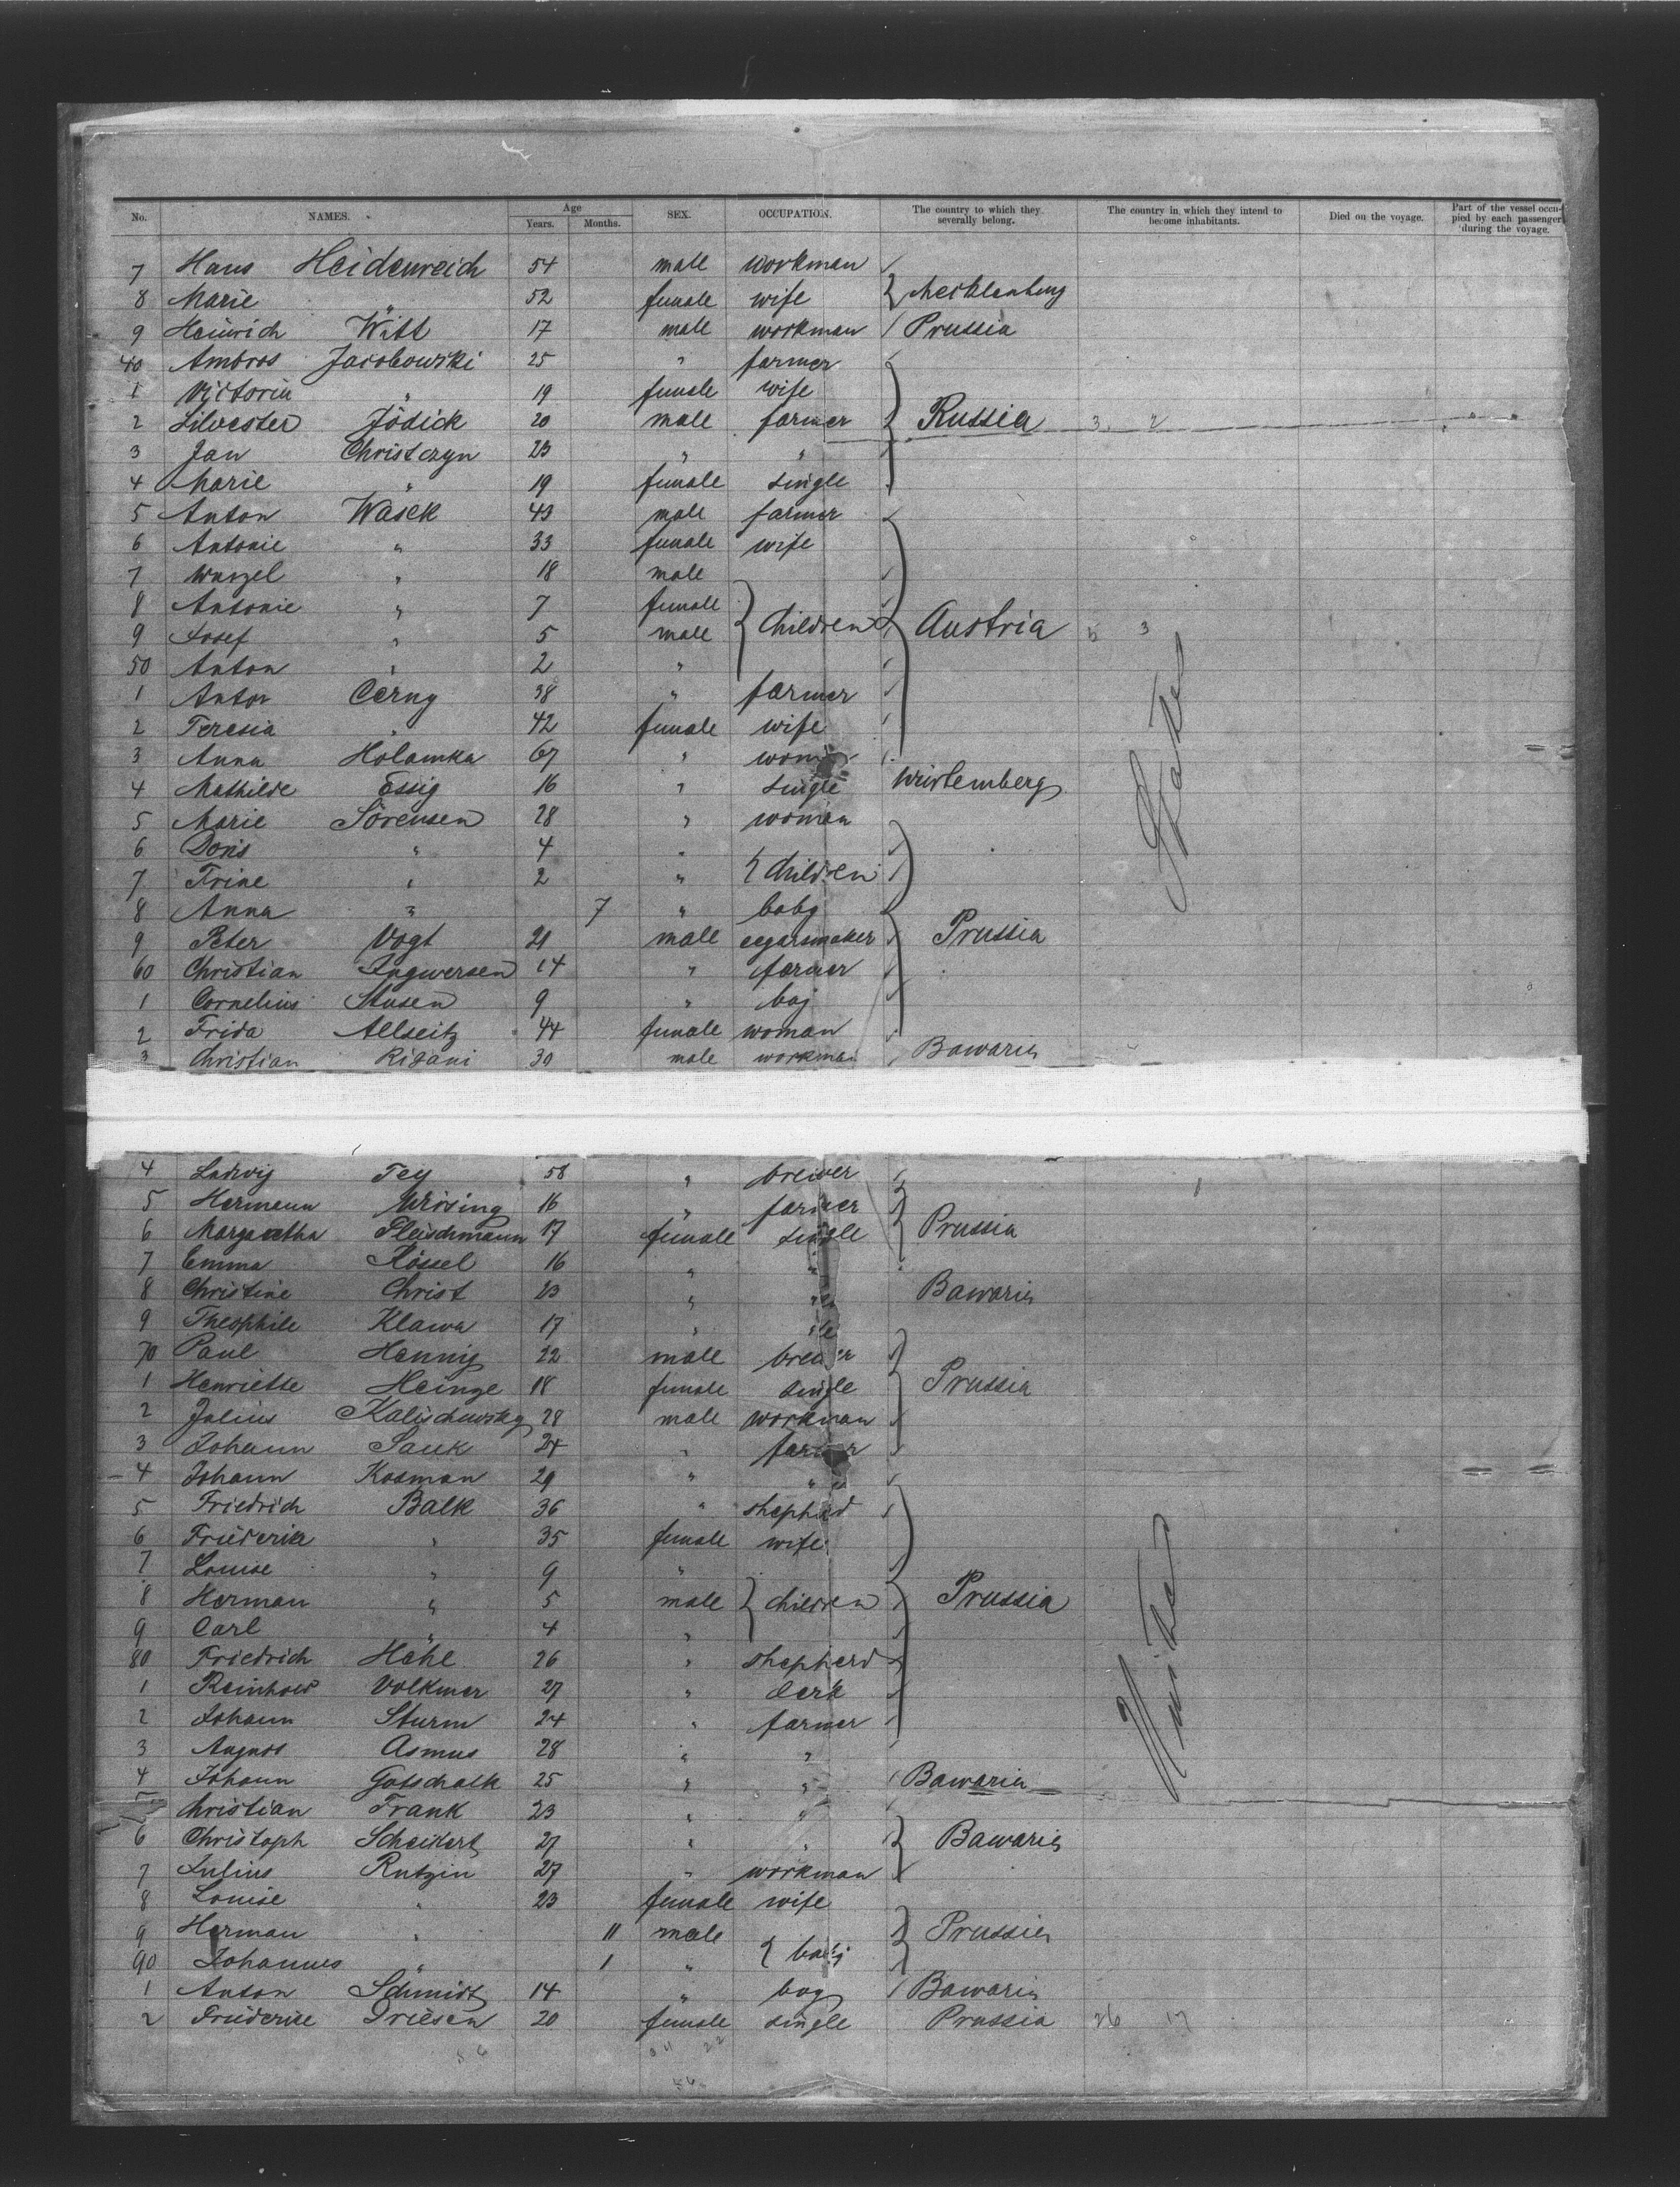 No. NAMES. Age Years. Months. SEX. OCCUPATION. The country to which they severally belong. The country in which they intend to become inhabitants. Died on the voyage. Part of the vessel occupied by each passenger during the voyage.
7 Hans Heidenreich 54 male workman
8 Marie " 52 female wife } Mecklenburg
9 Heinrich Witt 17 male workman Prussia
40 Ambros Jacobowski 25 " farmer
1 Victoria " 19 female wife
2 Silvester Jödick 20 male farmer } Russia 3 2
3 Jan Christczyn 23 " "
4 Marie " 19 female single
5 Anton Wasek 43 male farmer
6 Antonie " 33 female wife
7 Wenzel " 18 male
8 Antonie " 7 female
9 Josef " 5 male } children } Austria 5 3
50 Anton " 2 "
1 Anton Cerny 38 " farmer
2 Teresia " 42 female wife
3 Anna Holamka 67 "
4 Mathilde Essig 16 " single Würtemberg
5 Marie Sörensen 28 " woman
6 Doris " 4 "
7 Trine " 2 " } children
8 Anna " 7 " baby
9 Peter Vogt 21 male cegarsmaker } Prussia
60 Christian Ingwersen 14 " farmer
1 Cornelius Stusen 9 " boj
2 Frida Allseitz 44 female woman
3 Christian Rizani 30 male workman Bawaria
States
4 Ludwig Fey 58 " brewer
5 Hermann 16 " farmer
6 Margaretha Fleischmann 17 female single } Prussia
7 Emma Rössel 16 " "
8 Christine Christ 23 " " Bawaria
9 Theophile Klawa 17 "
70 Paul Hennig 22 male brewer
1 Henriette Heinze 18 female single } Prussia
2 Julius Kalischewsky 28 male workman
3 Johann Sauk 24 " farmer
4 Johann Kosman 29 " "
5 Friedrich Balk 36 " shepherd
6 Friederike " 35 female wife
7 Louise " 9 "
8 Herman " 5 male } children } Prussia
9 Carl " 4 "
80 Friedrich Hähl 26 " shepherd
1 Reinhold Volkmer 27 " clerk
2 Johann Sturm 24 " farmer
3 August Asmus 28 " "
4 Johann Gotschalk 25 " " Bawaria
Christian Frank 23 " "
6 Christoph Scheidert 27 " " } Bawaria
7 Julius Rutzin 27 " workman
8 Louise " 23 female wife
9 Herman " 11 male } Prussia
90 Johannes " 1 "
1 Anton Schmidt 14 " boy Bawaria
2 Friederike Driesen 20 female single Prussia 26 17
United
56 34 22
56